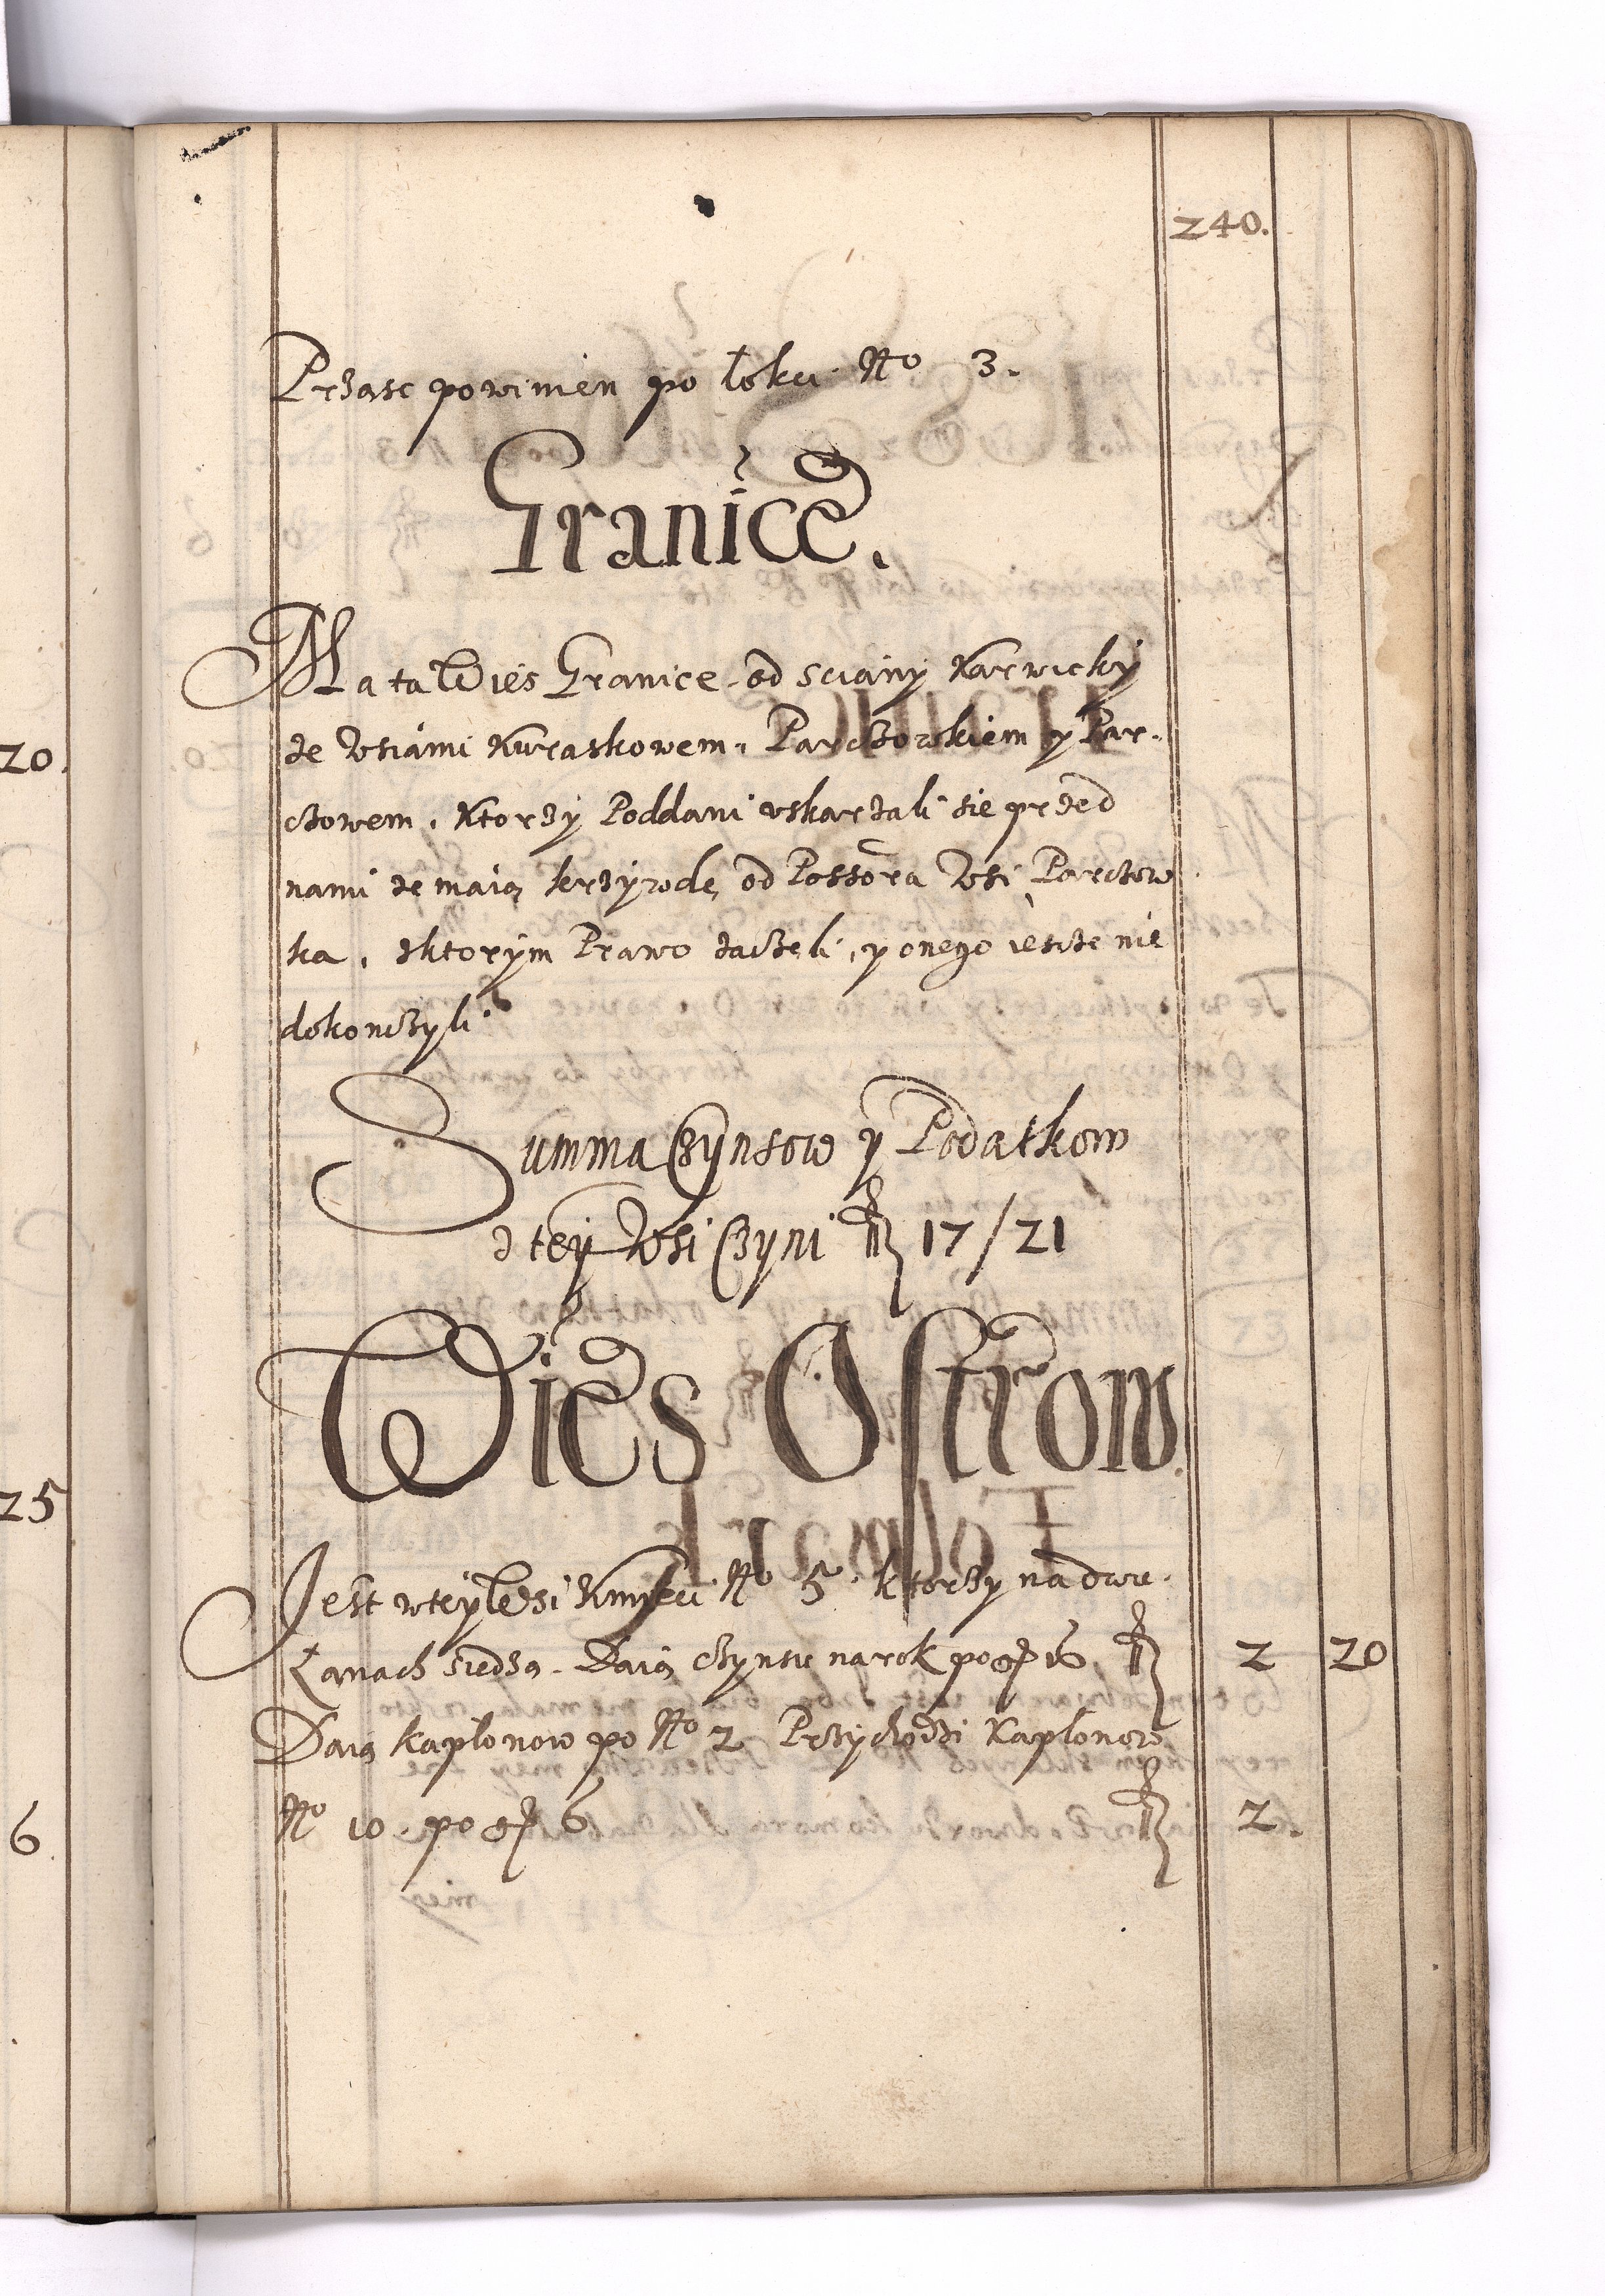 240.
Prząsc powinien po łokcu No 3.
Granice.
Ma ta Wies Granice od sciany Karwicky
ze Wsiami Kuraskowem, Parczowskiem y Par-
czowem, Ktorzy Poddani uskarzali sie przed
nami ze maią krzywdę od Possōra Wsi Parczow
ka, zktorym Prawo zaczeli, y onego iescze nie
dokonczyli
Summa Czynsow y Podatkow
z tey Wsi Czyni fl 17/21
Wies Ostrow.
Jest wtey Wsi Kmieci No 5. ktorzy na dwu
Łanach siedzą. Daią czynsu narok po gr 16. fl 2 20
Daią kapłonow po No 2 Przychodzi Kapłonow
No 10. po gr 6 fl 2.
20.
25
6